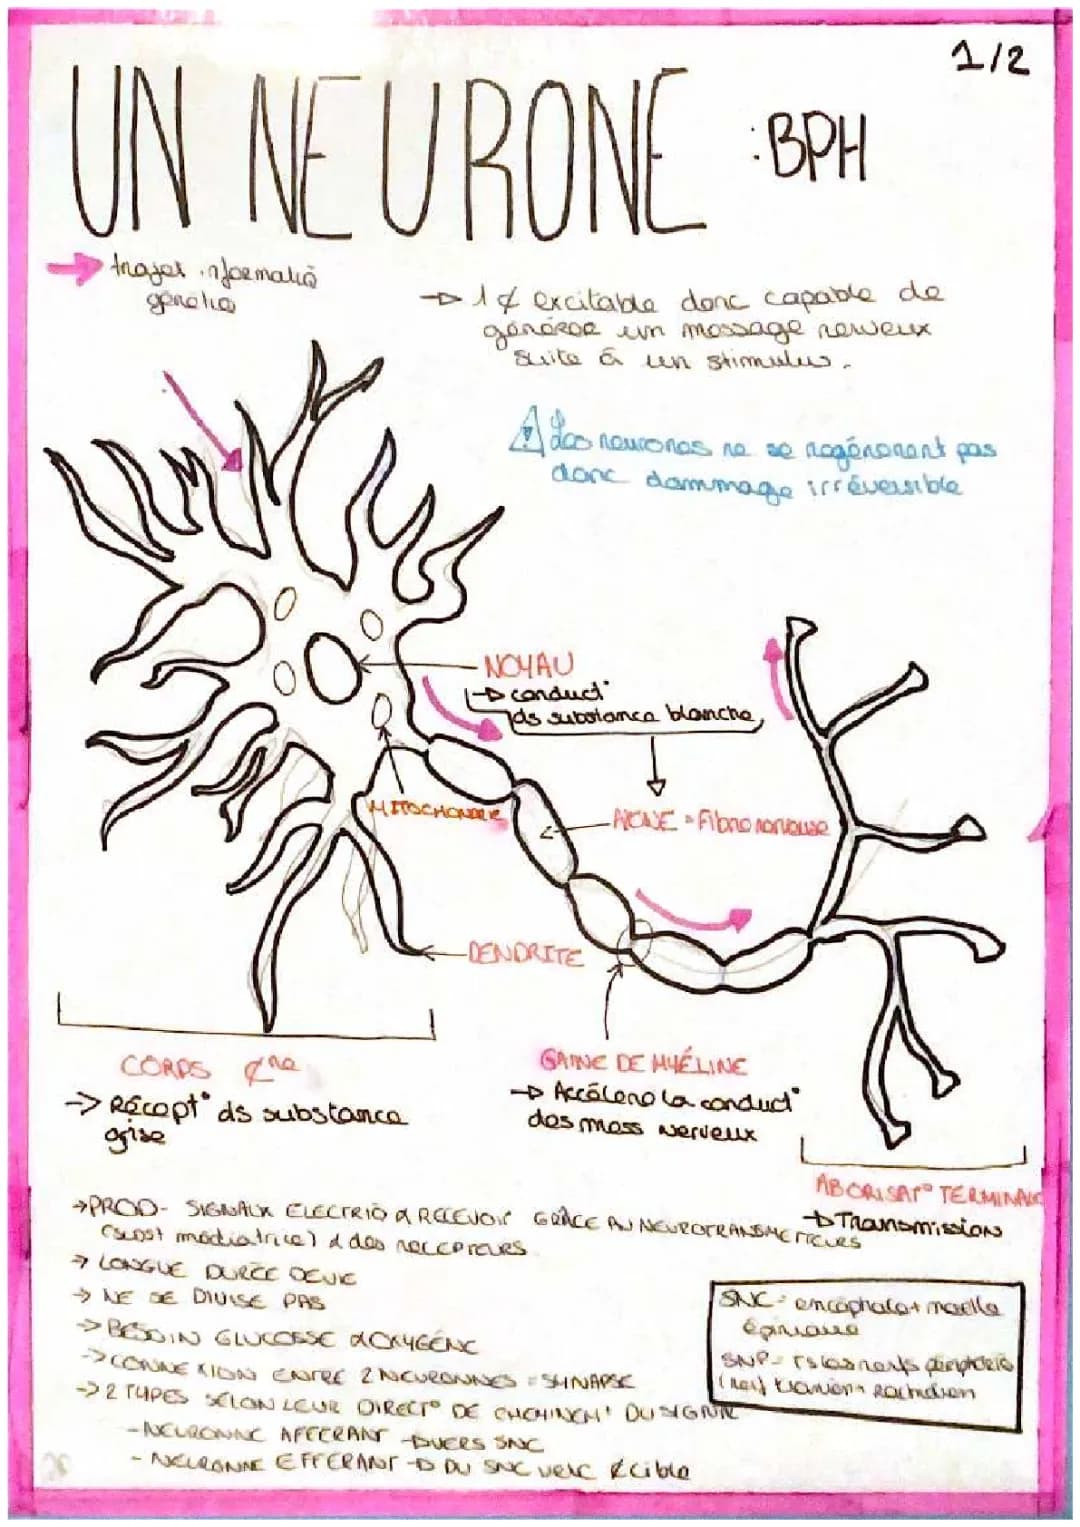 1/2
UN NEURONE : BPH
trajet informatiõ
génétiq
→ 1 ¢ excitable donc capable de
générer un message nerveux
suite à un stimulus.
⚠ Les neurones ne se régénèrent pas
donc dammage irréversible
NOYAU
→ conduct°
ds substance blanche
MITOCHONDRIE
AXONE = Fibre nerveuse
DENDRITE
CORPS ¢re
→ Récept° ds substance
grise
GAINE DE MYÉLINE
→ Accélère la conduct°
des mess nerveux
ABORISAT° TERMINALE
→ Transmission
→ PROD- SIGNAUX ELECTRIQ & RECEVOIR GRÂCE AU NEUROTRANSMETTEURS
(subst médiatrice) & des RECEPTEURS
→ LONGUE DURÉE DE VIE
→ NE SE DIVISE PAS
→ BESOIN GLUCOSSE & OXYGÉNE
→ CONNEXION ENTRE 2 NEURONNES = SYNAPSE
→ 2 TYPES SELON LEUR DIRECT° DE CHEMINEMT DU SIGNAL
- NEURONNE AFFERANT → VERS SNC
- NEURONNE EFFERANT → DU SNC VERS ¢ cible
SNC = encéphale + moelle
épiniere
SNP = Ts les nerfs périphérie
(nerf cranien + Rachidien